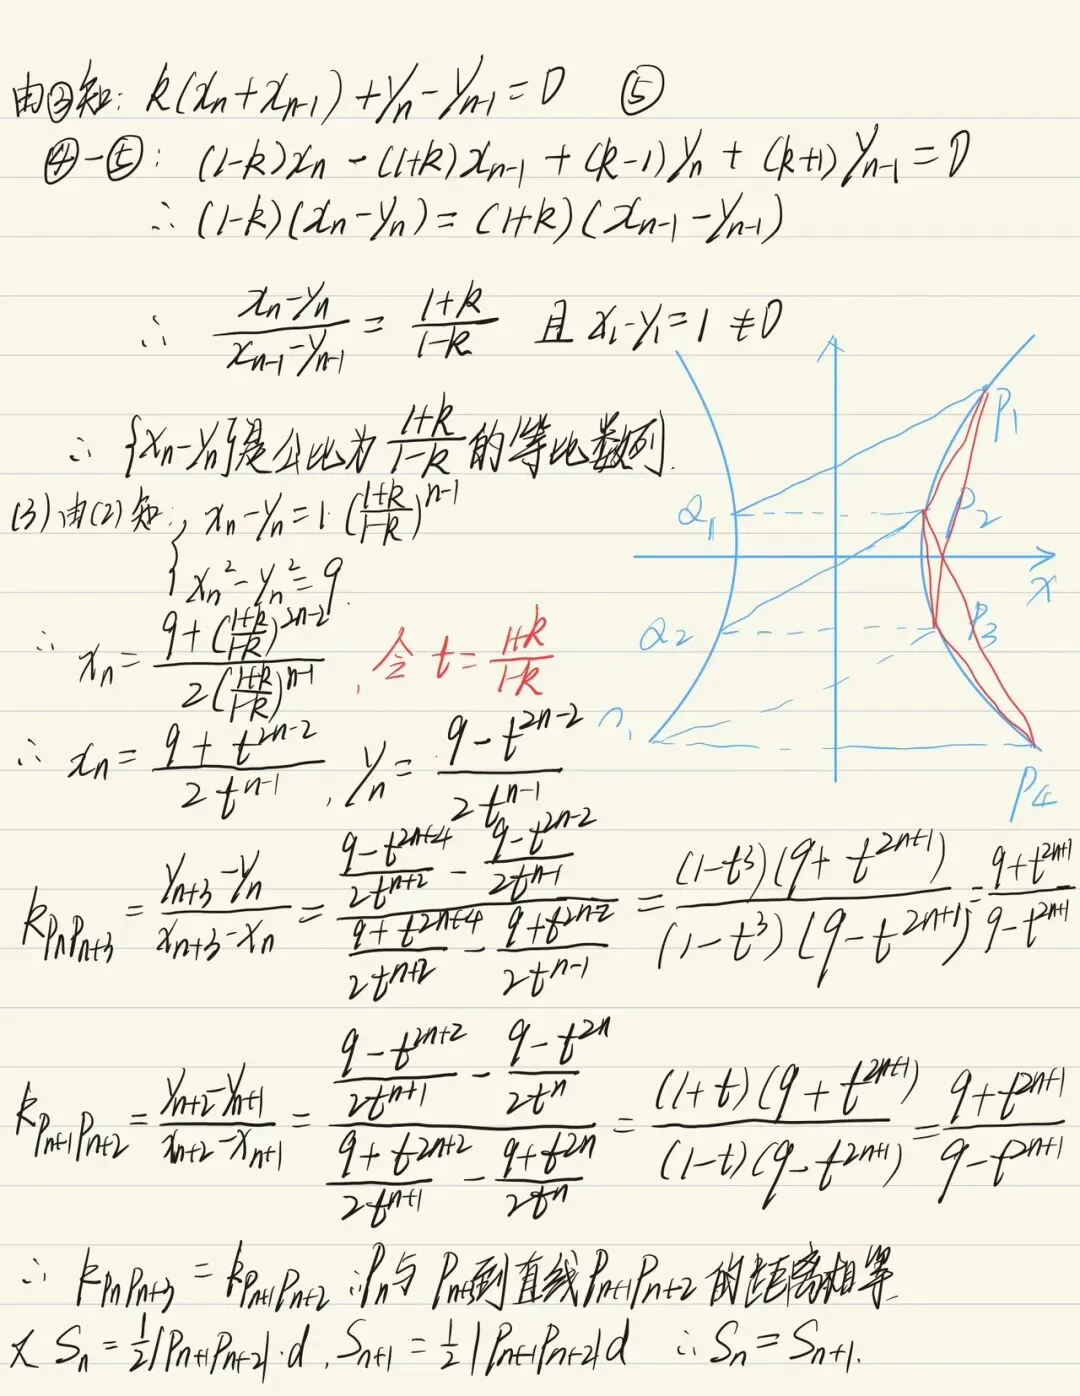 由③知: k(xₙ+xₙ₋₁)+yₙ-yₙ₋₁=0 ⑤
④-⑤: (1-k)xₙ-(1+k)xₙ₋₁+(k-1)yₙ+(k+1)yₙ₋₁=0
∴ (1-k)(xₙ-yₙ)=(1+k)(xₙ₋₁-yₙ₋₁)
∴ (xₙ-yₙ)/(xₙ₋₁-yₙ₋₁) = (1+k)/(1-k) 且 x₁-y₁=1≠0
∴ {xₙ-yₙ}是公比为 (1+k)/(1-k) 的等比数列.
(3)由(2)知: { xₙ-yₙ=1·((1+k)/(1-k))^(n-1)
xₙ²-yₙ²=9.
∴ xₙ = (9+((1+k)/(1-k))^(2n-2))/(2((1+k)/(1-k))^(n-1)), 令 t=(1+k)/(1-k)
∴ xₙ = (9+t^(2n-2))/(2t^(n-1)), yₙ = (9-t^(2n-2))/(2t^(n-1))
k_(PₙPₙ₊₃) = (yₙ₊₃-yₙ)/(xₙ₊₃-xₙ) = ((9-t^(2n+4))/(2t^(n+2)) - (9-t^(2n-2))/(2t^(n-1)))/((9+t^(2n+4))/(2t^(n+2)) - (9+t^(2n-2))/(2t^(n-1))) = ((1-t³)(9+t^(2n+1)))/((1-t³)(9-t^(2n+1))) = (9+t^(2n+1))/(9-t^(2n+1))
k_(Pₙ₊₁Pₙ₊₂) = (yₙ₊₂-yₙ₊₁)/(xₙ₊₂-xₙ₊₁) = ((9-t^(2n+2))/(2t^(n+1)) - (9-t^(2n))/(2t^n))/((9+t^(2n+2))/(2t^(n+1)) - (9+t^(2n))/(2t^n)) = ((1+t)(9+t^(2n+1)))/((1-t)(9-t^(2n+1))) = (9+t^(2n+1))/(9-t^(2n+1))
∴ k_(PₙPₙ₊₃) = k_(Pₙ₊₁Pₙ₊₂) ∴Pₙ与Pₙ₊₃到直线Pₙ₊₁Pₙ₊₂的距离相等.
又 Sₙ=½|Pₙ₊₁Pₙ₊₂|·d, Sₙ₊₁=½|Pₙ₊₁Pₙ₊₂|d ∴ Sₙ=Sₙ₊₁.
P₁
Q₁
P₂
x
Q₂
P₃
P₄